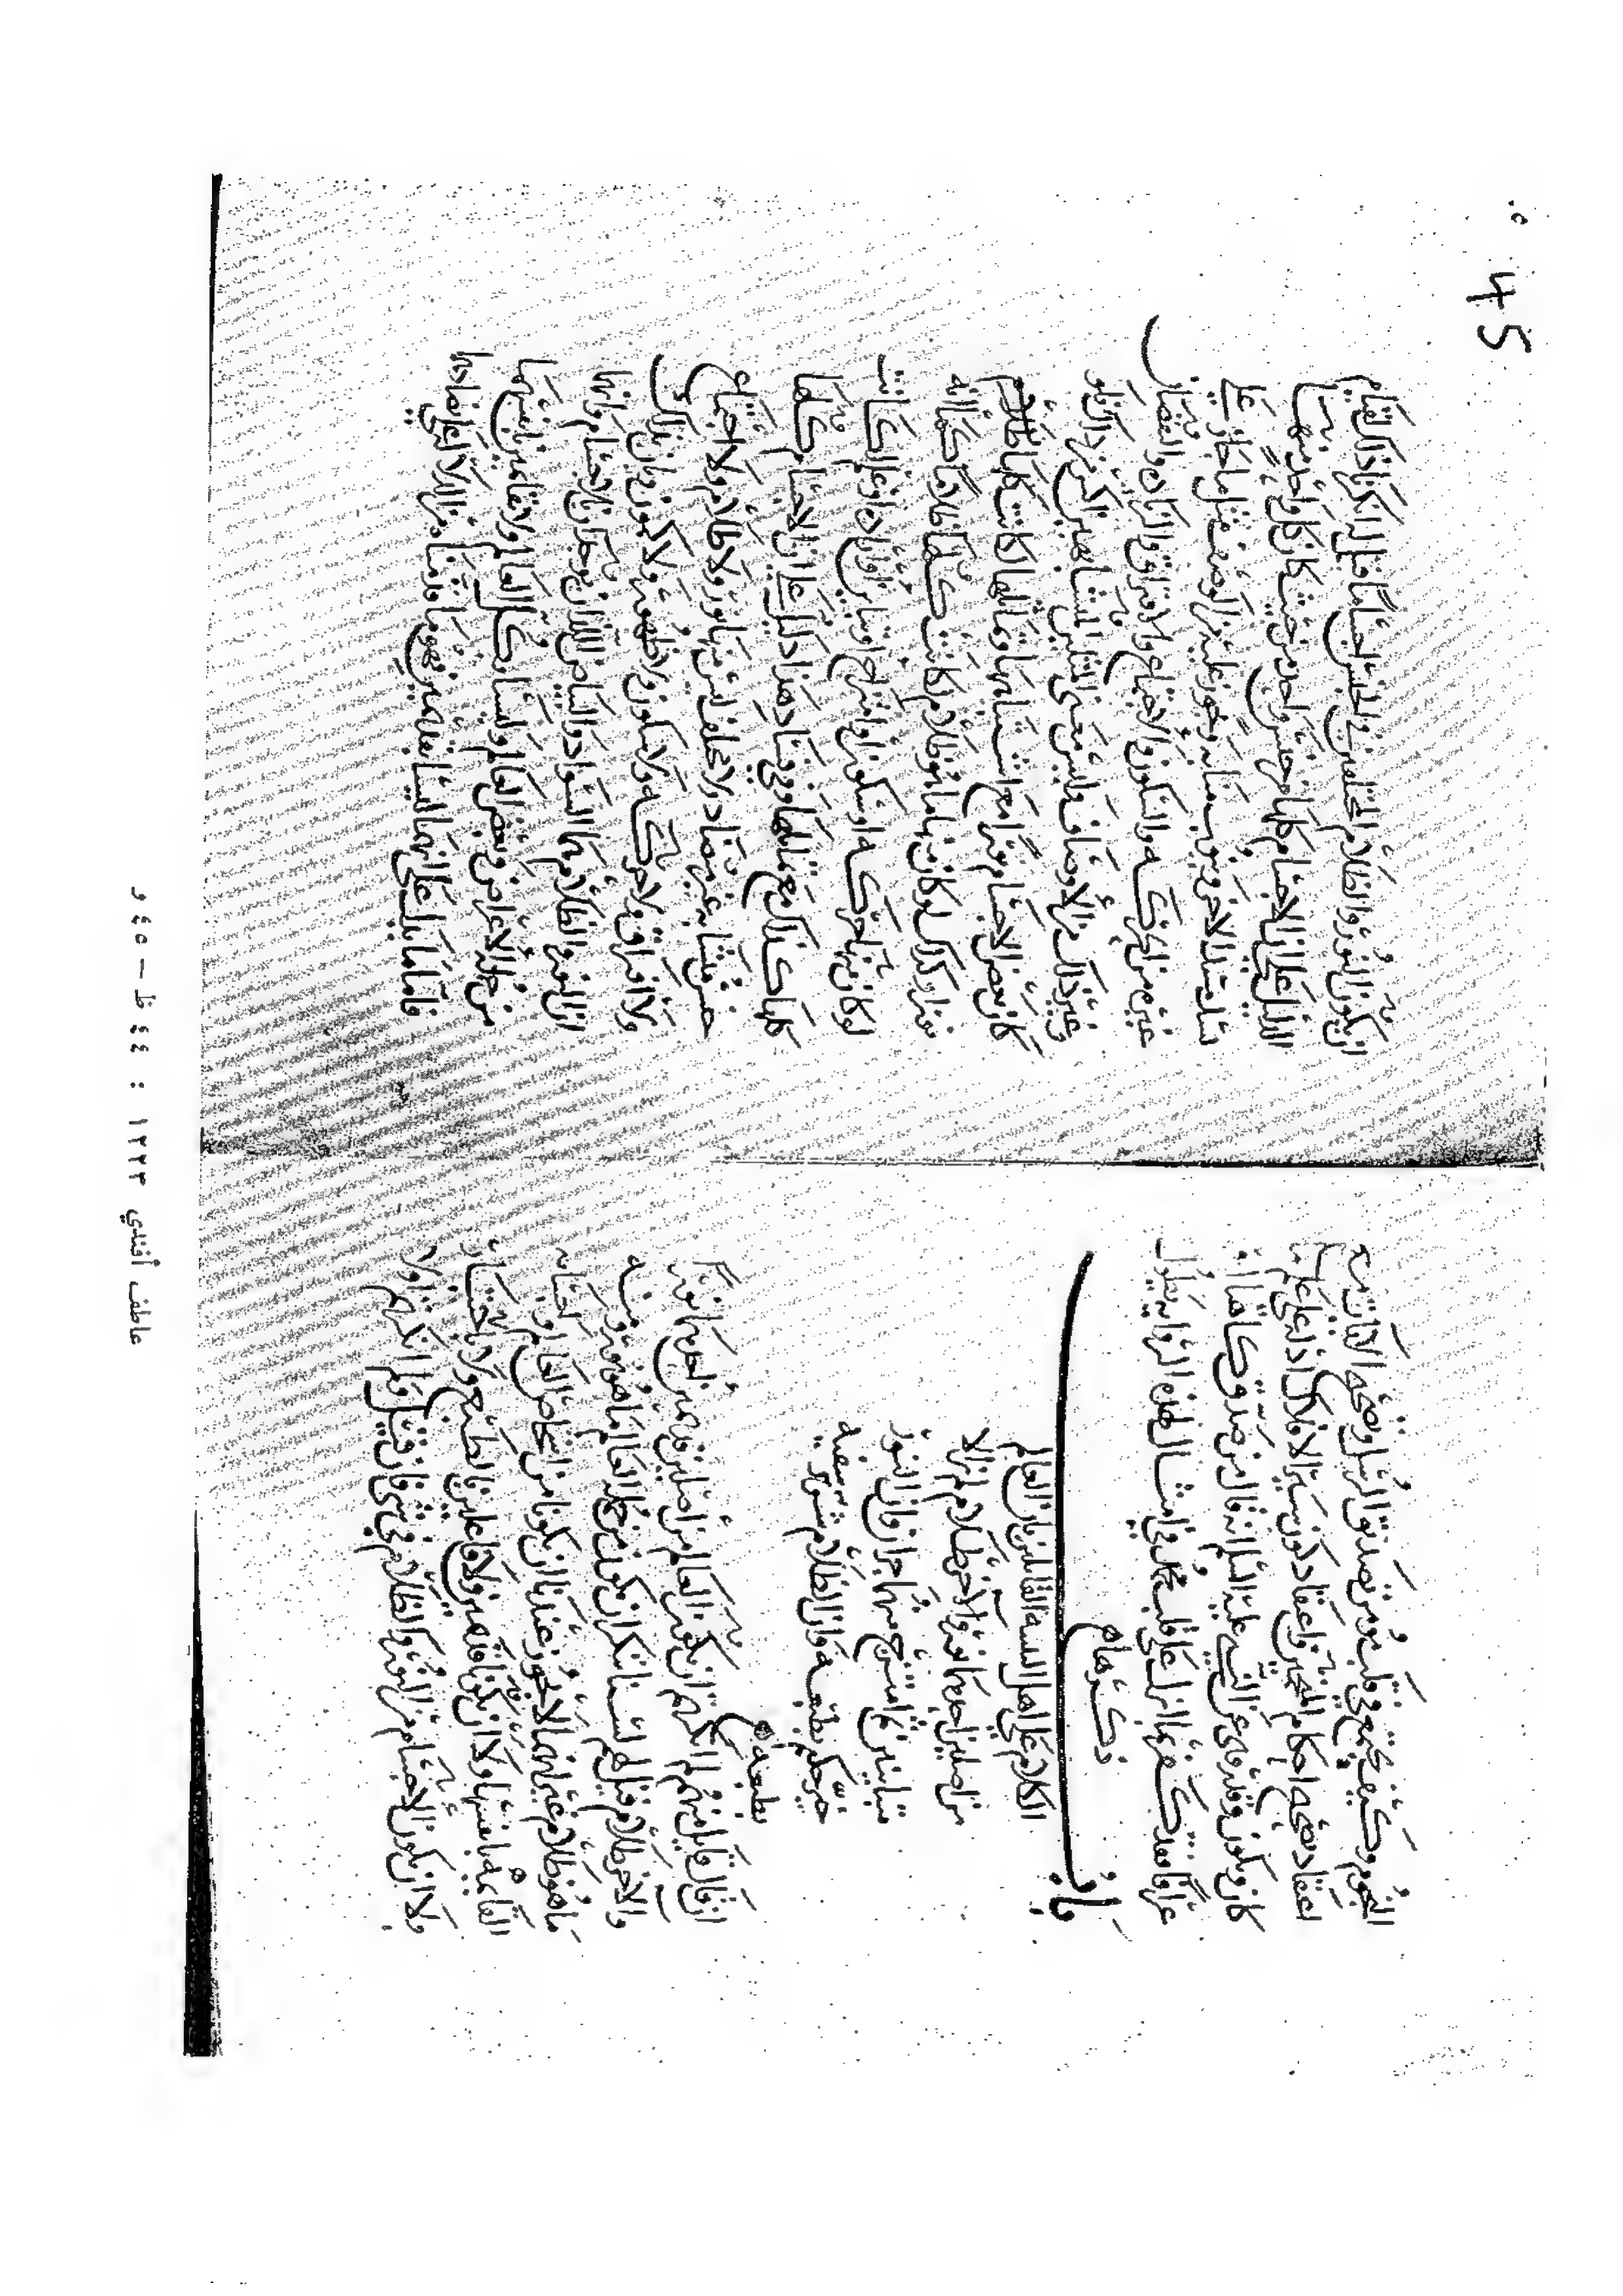 45
النجوم وكيف يجتمع في قلب مؤمن تصديق الرسل وصحة الآيات مع
اعتقاد صحة احكام المنجمين واعتقاد كون سير الافلاك
كان ويكون وقد روي عن النبي عليه السلم انه قال من صدق كاهنا او
عرافا فقد كفر بما انزل على قلب محمد في امثال لهذه الرواية يطول
ذكرها
باب
الكلام على اهل التثنية القائلين بان العالم
من اصلين احدهما نور والاخر ظلام لم يزالا
متباينين ثم امتزج منهما جزان وان النور
خير حكيم بطبعه وان الظلام شرير سفيه
بطبعه
ان قال قايل لم انكرتم ان يكون العالم من اصلين قديمين احدهما نور
والاخر ظلام قيل لهم لسنا ننكر ان يكون من جملة العالم ما هو نور ومنه
ما هو ظلام غير انهما لا يجوز عندنا ان يكونا من اشخاص العالم واجسامه
القايمة بانفسها ولا ان يكونا قديمين ولا فاعلين بالطبع ولا باختيار
ولا ان يكون الاجسام من النور والظلام في شي فان قيل ولم انكرتم اولا
ان يكون النور والظلام المختلفين في الجنس اجساما قيل له انكرنا ذلك لقيام
الدليل على ان الاجسام كلها من جنس واحد من حيث كان كل واحد منهما
يسد مسد الاخر وينوب منابه ويجوز عليه من الوصف مثل ما جاز على
غيره من الحركة والسكون والاجتماع والافتراق والزيادة والنقصان
وغير ذلك من الاوصاف وليس معنى المثلين المشتبهين اكثر من ذلك فلو
كان بعض الاجسام نورا مع اشتباهها وتماثلها لكانت كلها
نورا وكذلك لو كان منها ما هو ظلام لكانت كلها ظلاما كما انه
لو كان منها حركة او سكون او امتزاج او تباين او ارادة او علم لكانت
كلها كذلك مع تماثلها وفي فساد هذا دليل على ان الاجسام كلها
جنس متشابه غير متضاد ولا مختلف ليس منها نور ولا ظلام ولا اجتماع
ولا افتراق ولا حركة ولا سكون وبان بذلك
ان النور والظلام هما السواد والبياض اللذان يوجدان بالاجسام وانهما
من جملة الاعراض وبعض العالم وليسا بكل العالم ولا قايمين بانفسهما
فاما ما يدل على انهما ليسا بقديمين فهو ما قدمنا من الادلة على تضادهما
عاطف أفندي ١٢٢٣ : ٤٤ظ - ٤٥و